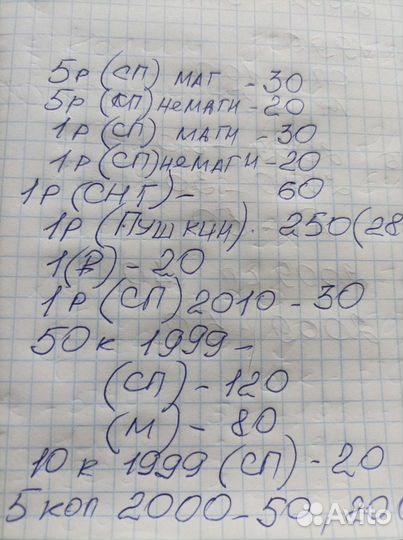 5р (СП) маг - 30
5р (СП) немагн - 20
1р (СП) магн - 30
1р (СП) немагн - 20
1р (СНГ) - 60
1р (Пушкин) - 250 (28
1 (₽) - 20
1р (СП) 2010 - 30
50к 1999 -
(СП) - 120
(М) - 80
10 к 1999 (СП) - 20
5 коп 2000 - 50
Avito